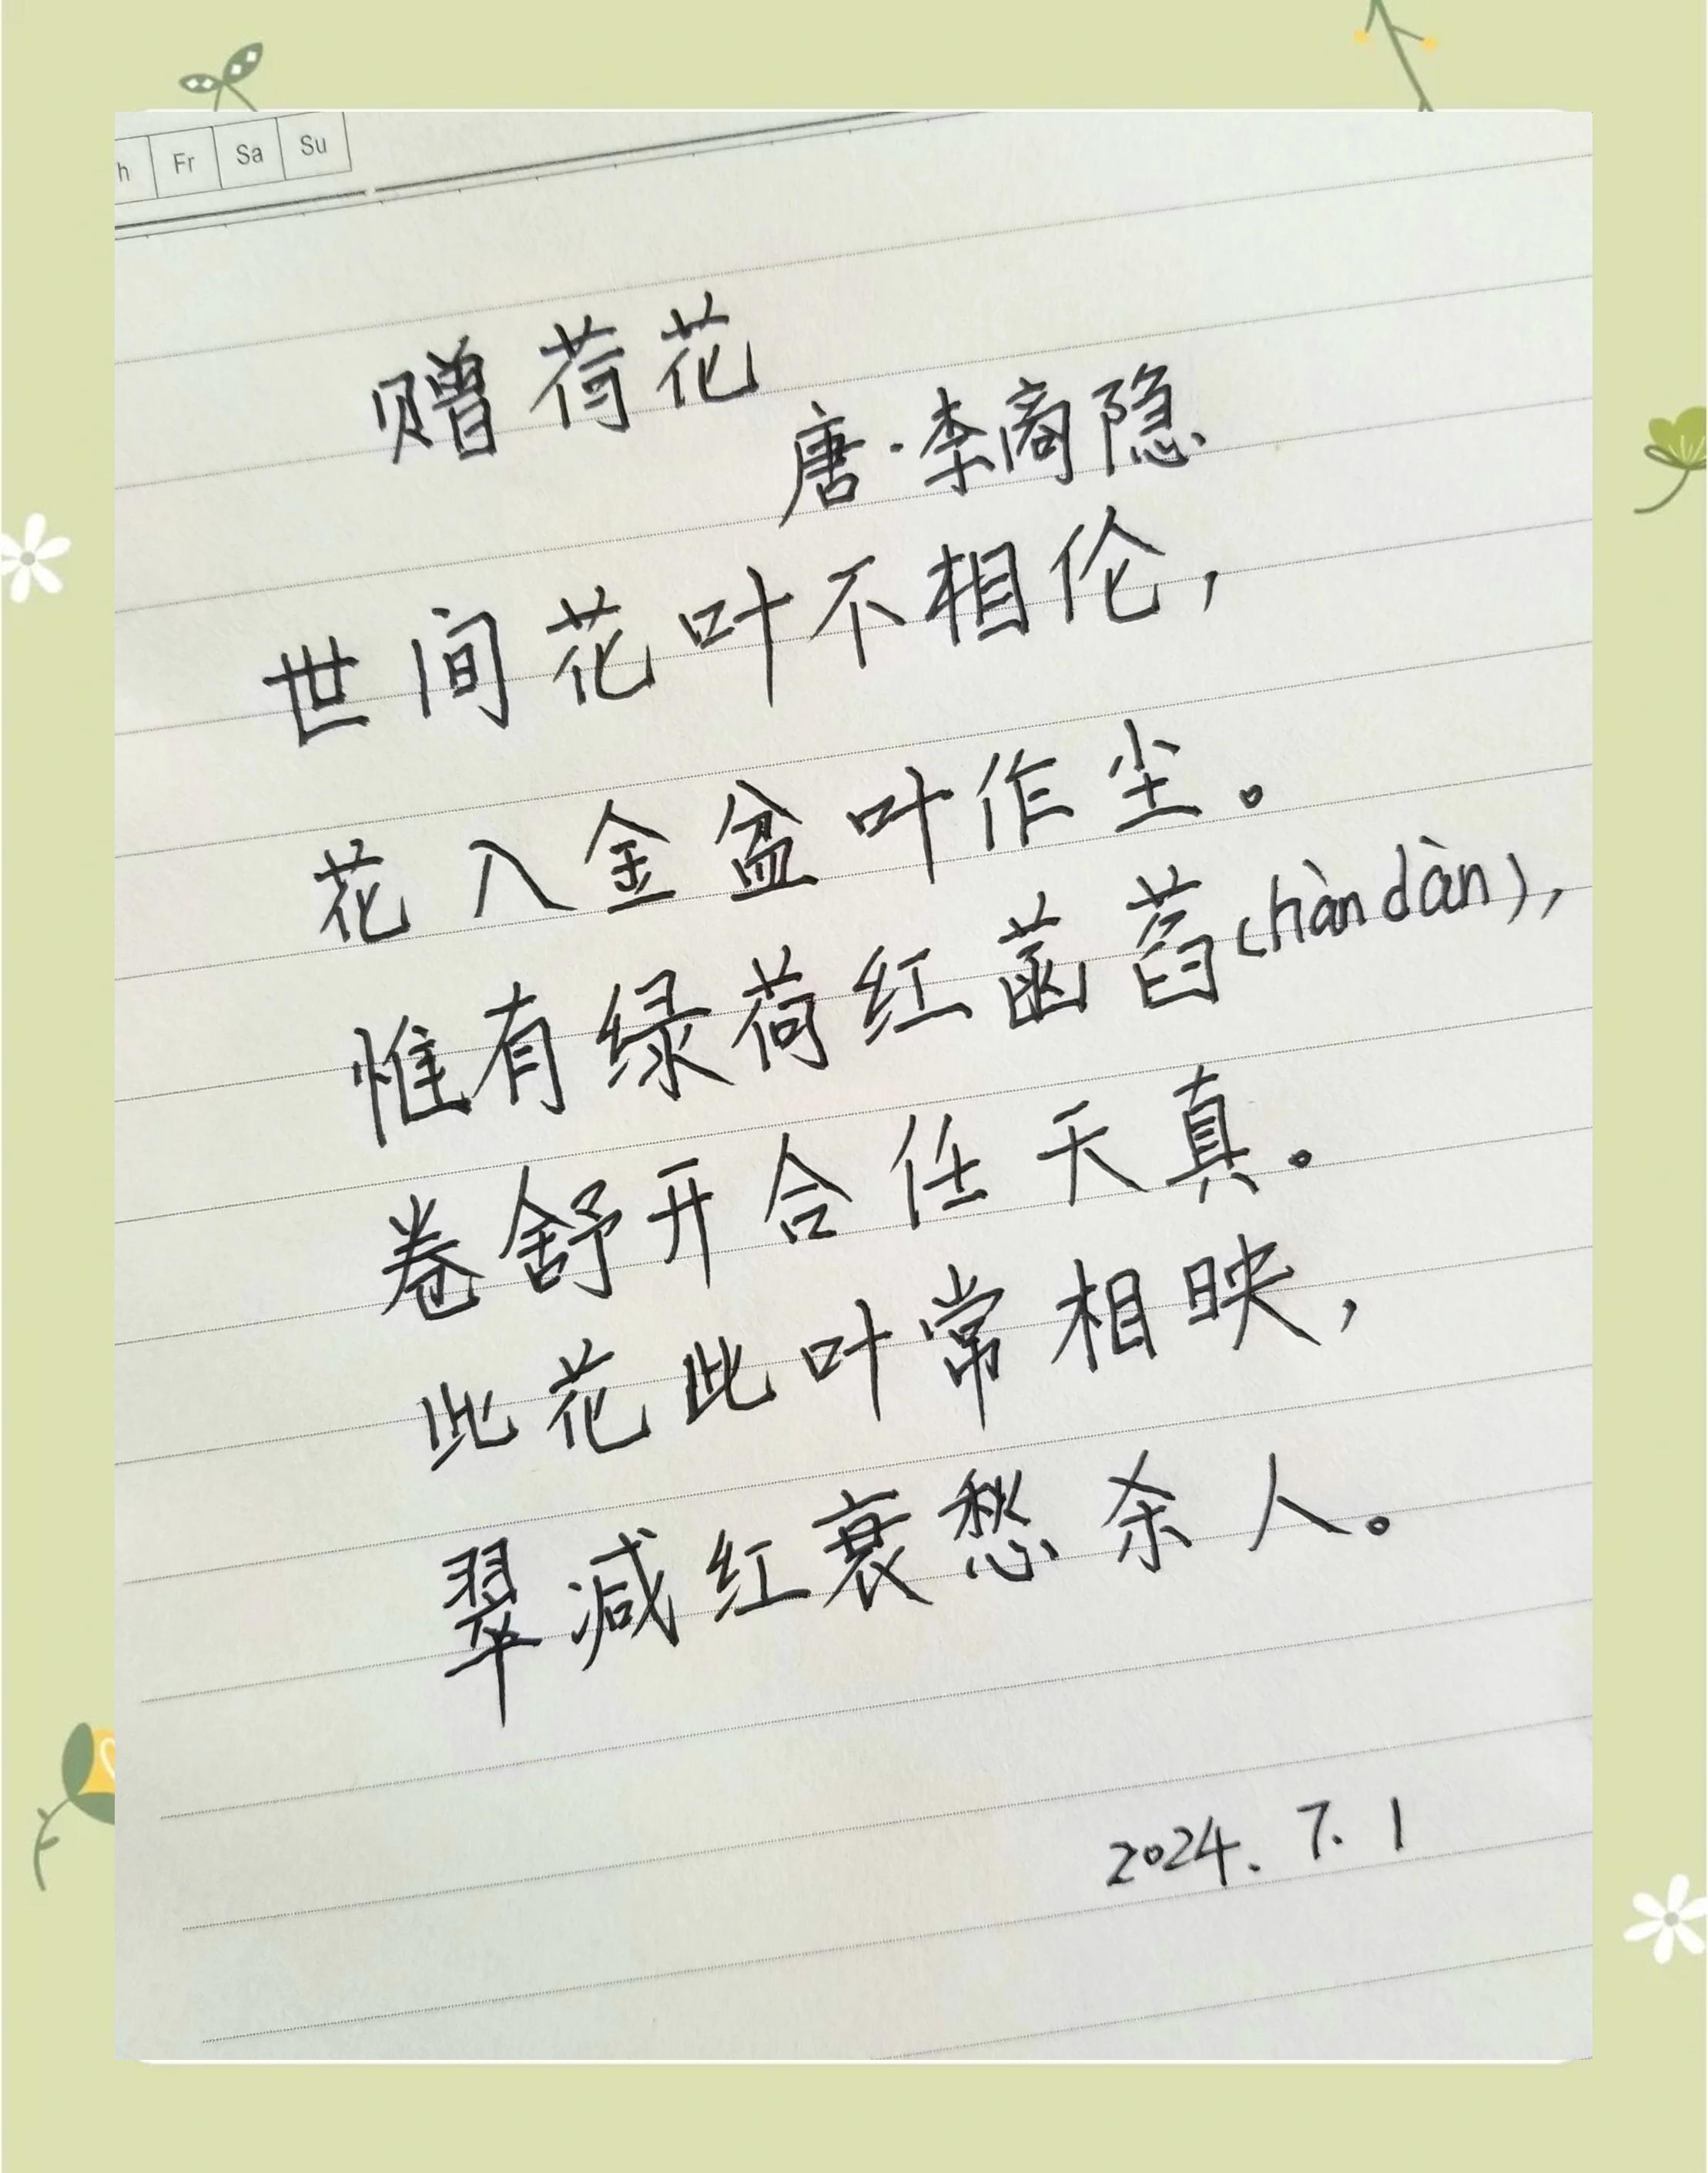 h Fr Sa Su
赠荷花
唐·李商隐
世间花叶不相伦，
花入金盆叶作尘。
惟有绿荷红菡萏(hàn dàn)，
卷舒开合任天真。
此花此叶常相映，
翠减红衰愁杀人。
2024.7.1